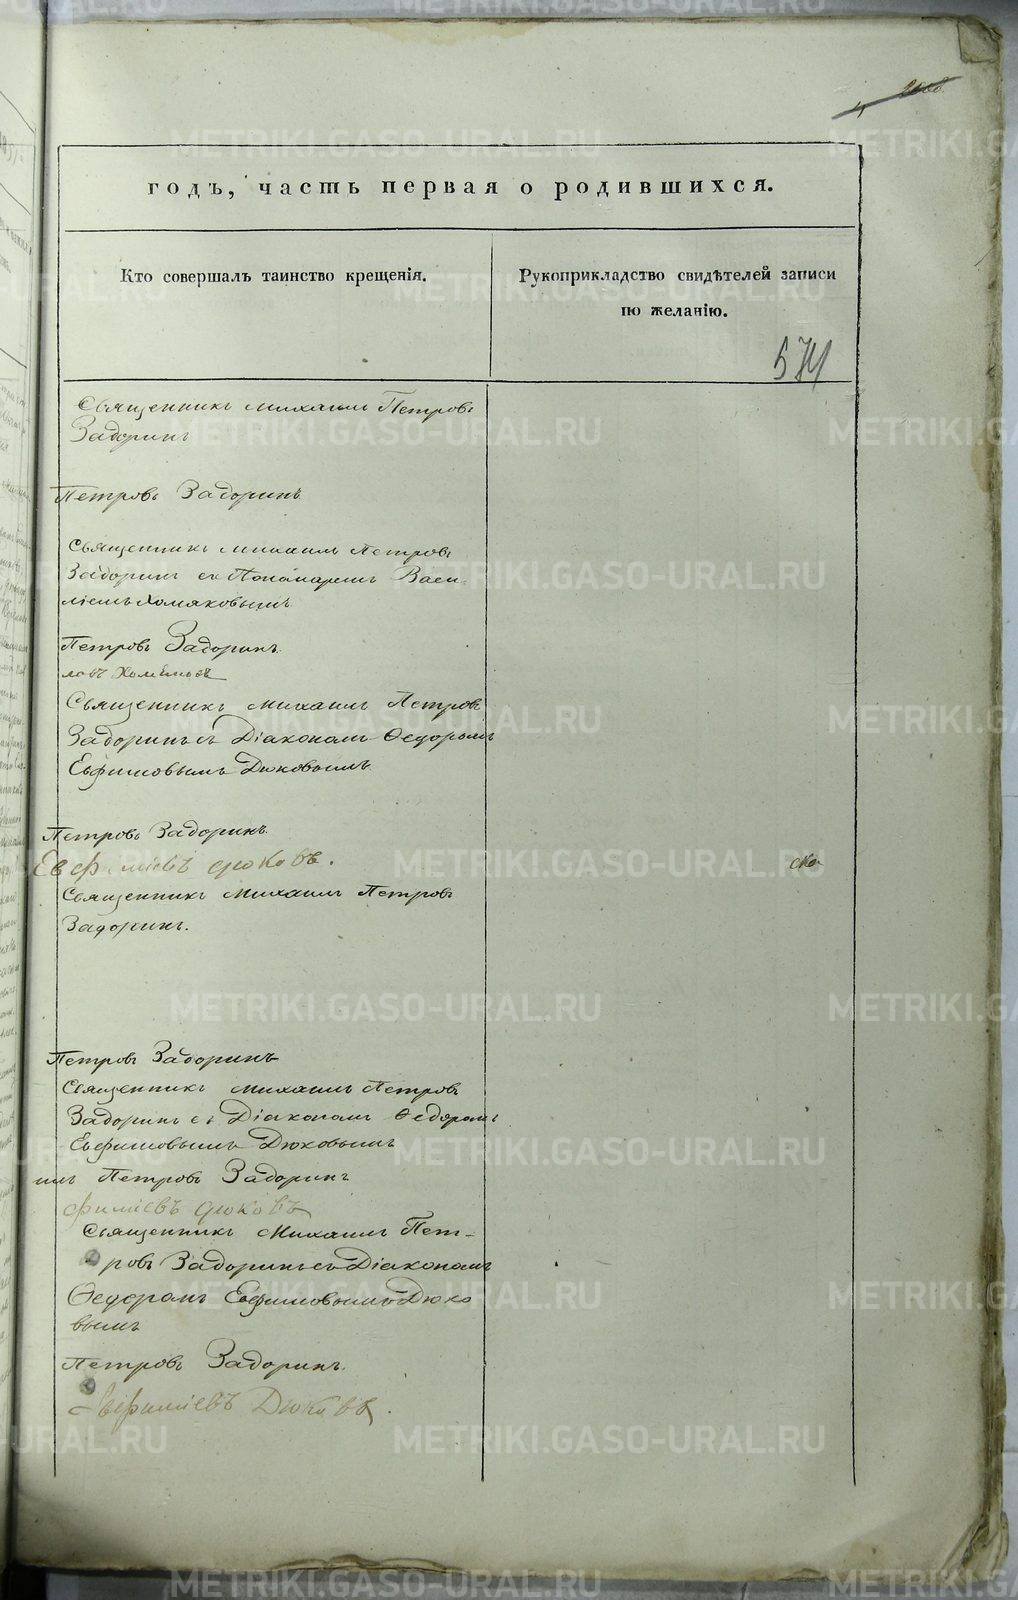 годъ, часть первая о родившихся.
Кто совершалъ таинство крещенія.
Рукоприкладство свидѣтелей записи
по желанію.
574
Священникъ Михаилъ Петровъ
Задоринъ
Петровъ Задоринъ
Священникъ Михаилъ Петровъ
Задоринъ съ Пономаремъ Васи-
ліемъ Хомяковымъ
Петровъ Задоринъ.
Священникъ Михаилъ Петровъ
Задоринъ съ Діакономъ Ѳедоромъ
Евфимовымъ Дюковымъ.
Петровъ Задоринъ.
Евфиміевъ Дюковъ.
Священникъ Михаилъ Петровъ
Задоринъ.
Петровъ Задоринъ
Священникъ Михаилъ Петровъ
Задоринъ съ Діакономъ Ѳедоромъ
Евфимовымъ Дюковымъ
илъ Петровъ Задоринъ
фиміевъ Дюковъ
Священникъ Михаилъ Пет-
ровъ Задоринъ съ Діакономъ
Ѳедоромъ Евфимовымъ Дюко
вымъ
Петровъ Задоринъ.
Евфиміевъ Дюковъ.
METRIKI.GASO-URAL.RU